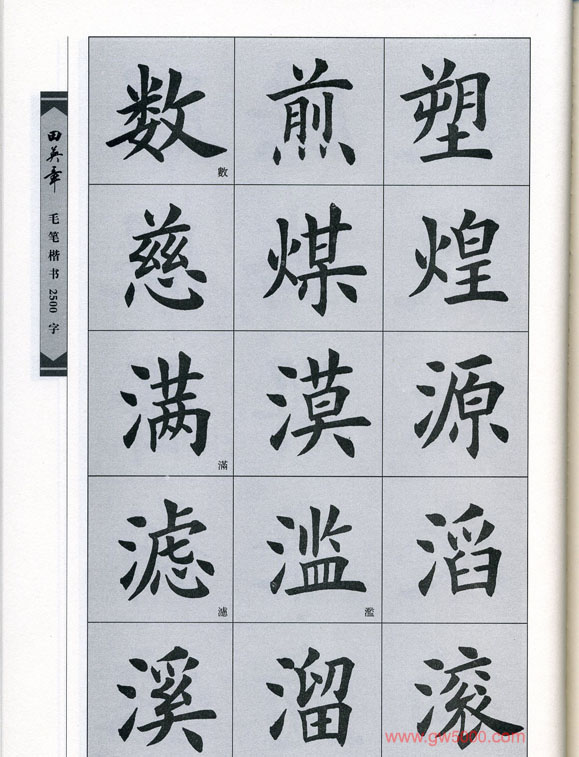 田英章
毛笔楷书2500字
数 數 煎 塑
慈 煤 煌
满 滿 漠 源
滤 濾 滥 濫 滔
溪 溜 滚
www.gw5000.com